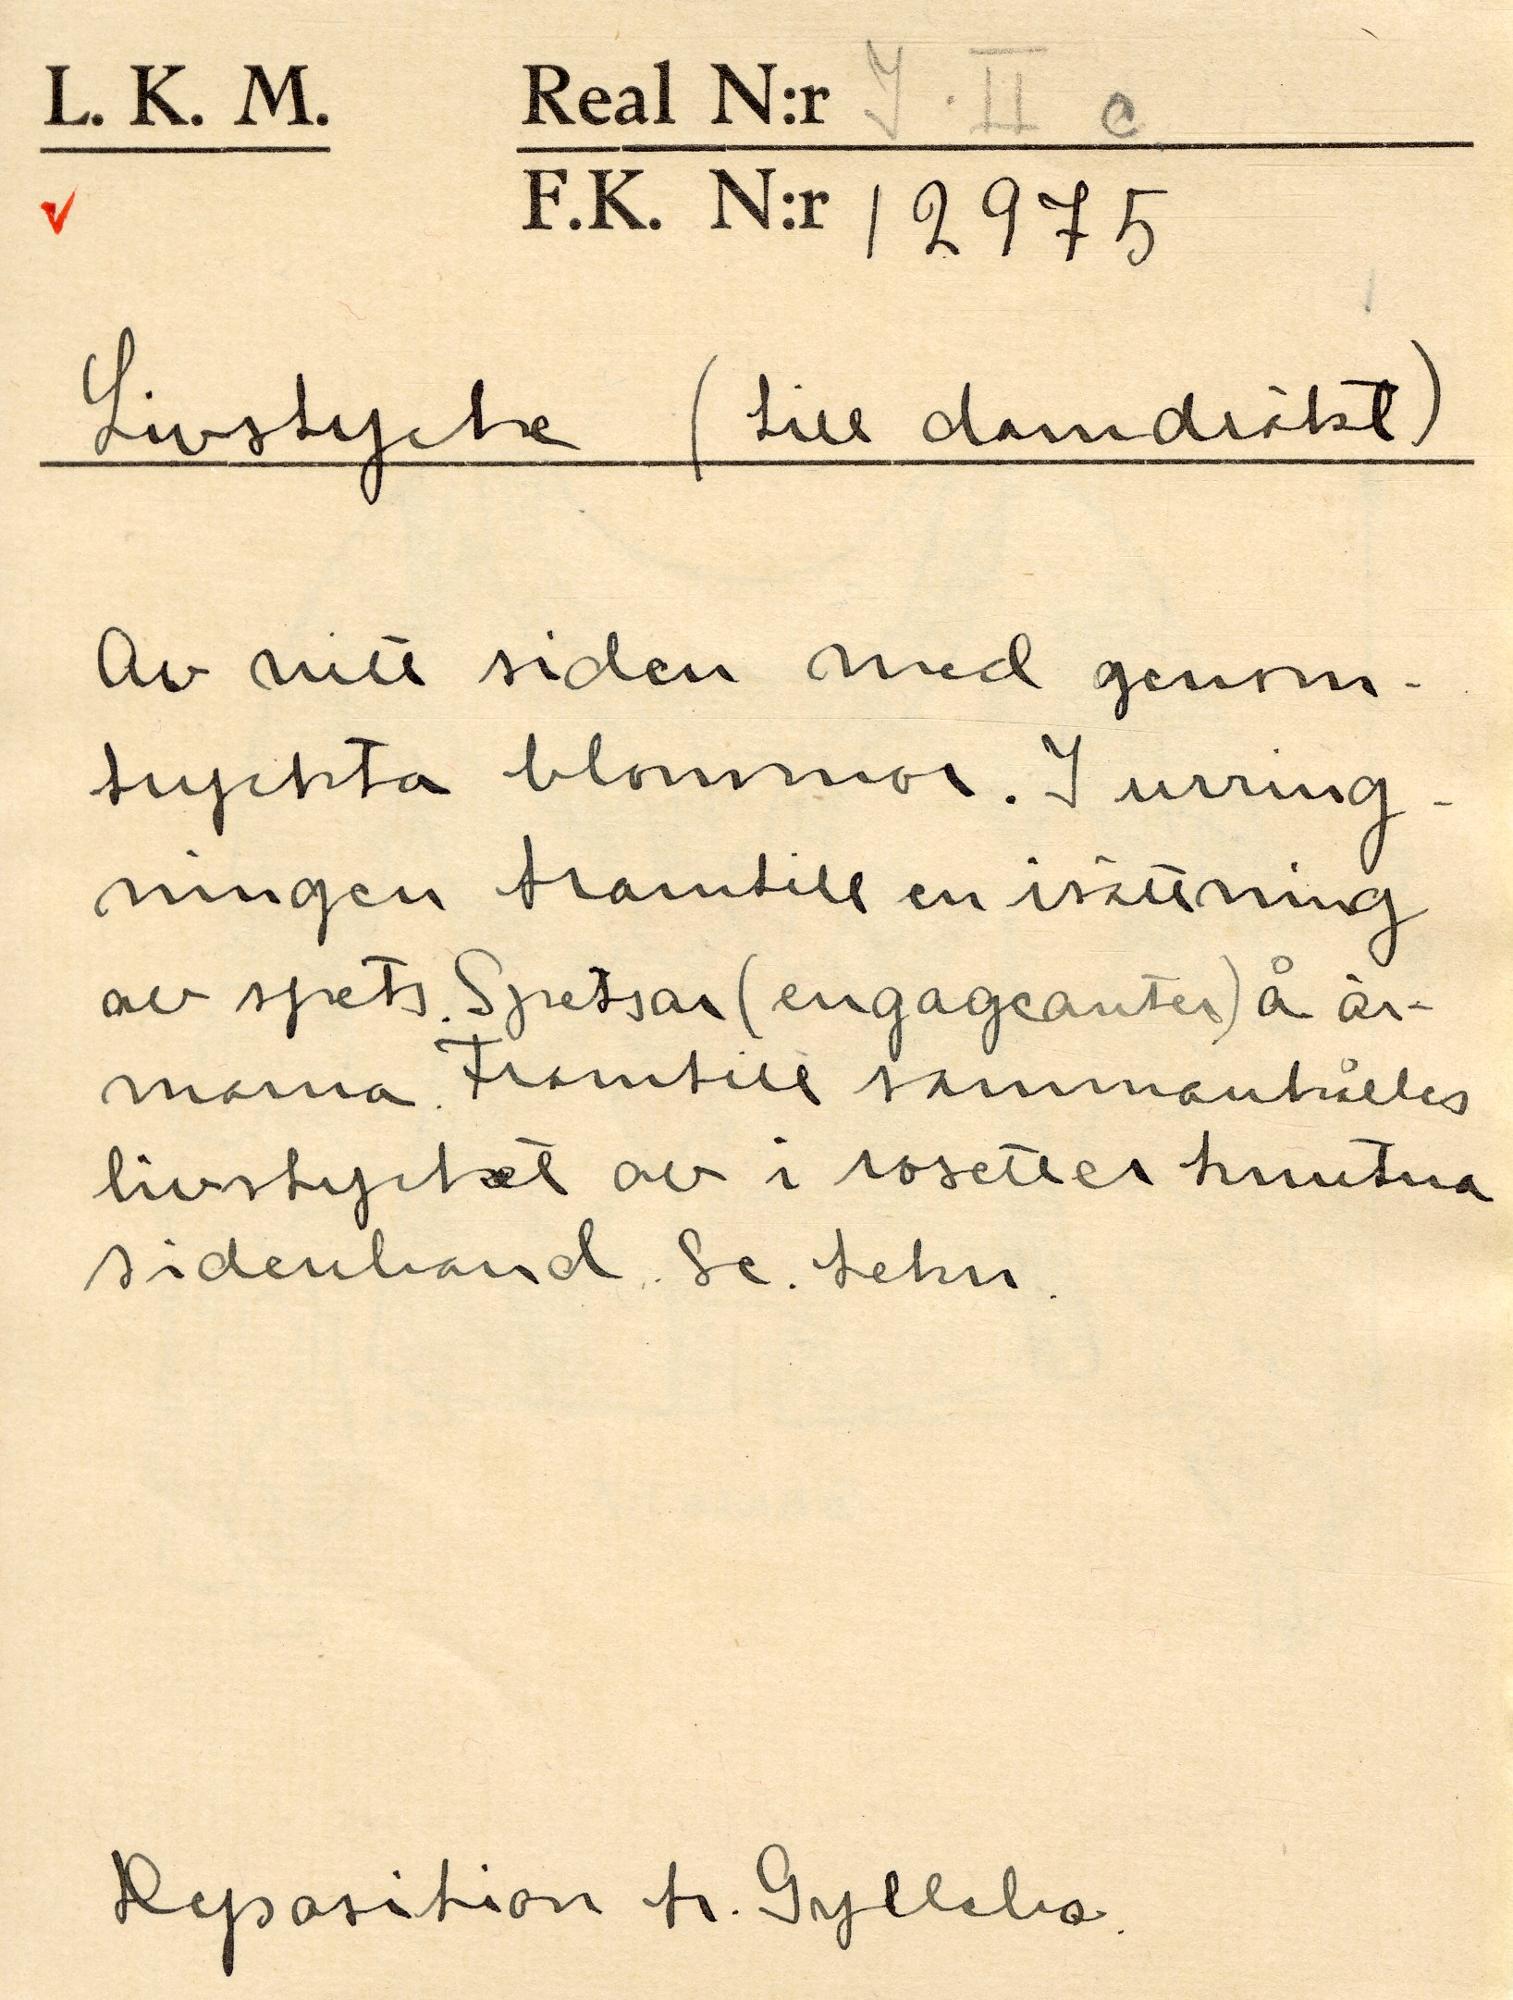 L. K. M. Real N:r I. II c
F.K. N:r 12975
Livstycke (till damdräkt)
Av vitt siden med genom-
tryckta blommor. I urring-
ningen framtill en isättning
av spets. Spetsar (engageanter) å är-
marna. Framtill sammanhålles
livstycket av i rosetter knutna
sidenband. Se. tekn.
Deposition fr. Gyllebo.